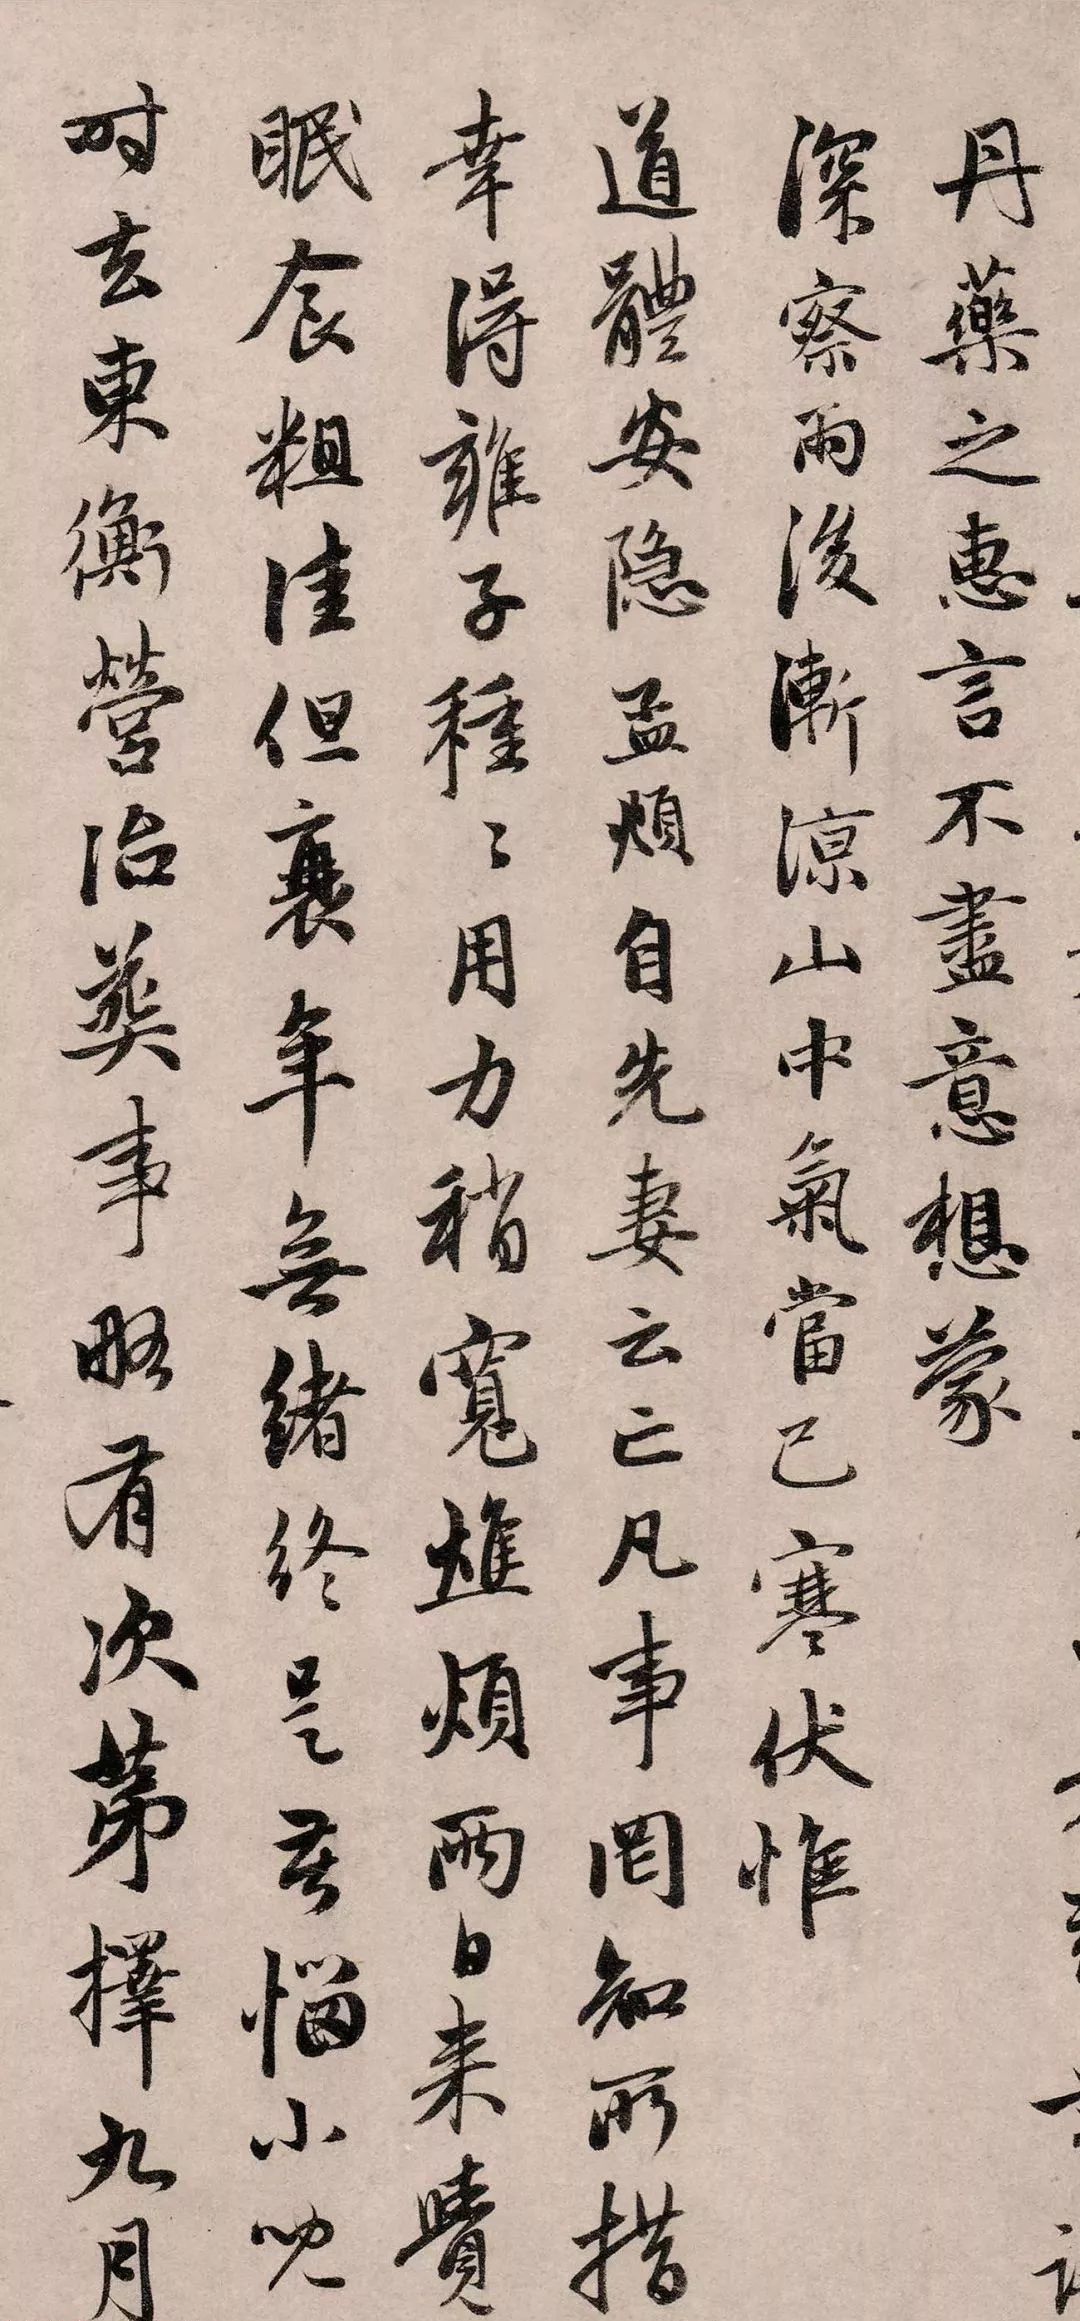 丹藥之惠言不盡意想蒙
深察雨後漸涼山中氣當已寒伏惟
道體安隱孟頫自先妻云亡凡事罔知所措
幸得雍子種〻用力稍寬雄煩兩日來覺
眠食粗佳但衰年無緒終是苦惱小兒
時去東衡營治葬事略有次第擇九月